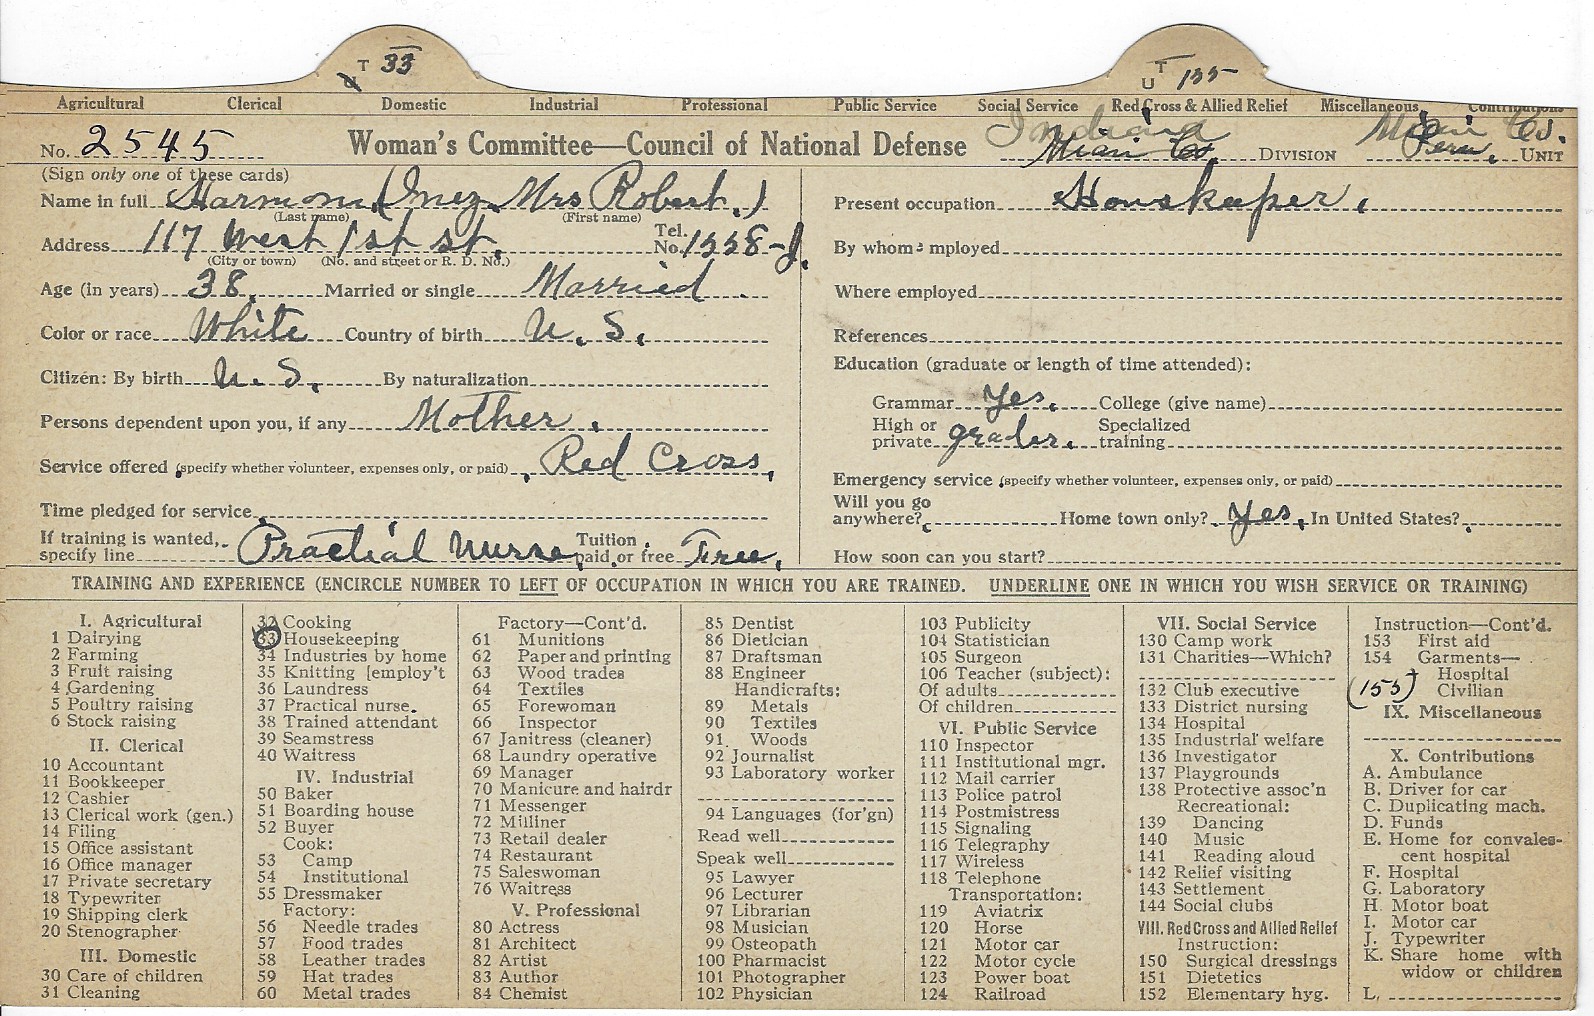 T 33
U T 155
Agricultural Clerical Domestic Industrial Professional Public Service Social Service Red Cross & Allied Relief Miscellaneous Contributions
No. 2545 Woman's Committee—Council of National Defense Indiana Miami Co. DIVISION Miami Co. Peru. UNIT
(Sign only one of these cards)
Name in full Harmon (Inez, Mrs Robert.)
(Last name) (First name)
Address 117 West 1st st. Tel. No. 1558-J.
(City or town) (No. and street or R. D. No.)
Age (in years) 38. Married or single Married.
Color or race White Country of birth U. S.
Citizen: By birth U. S. By naturalization
Persons dependent upon you, if any Mother.
Service offered (specify whether volunteer, expenses only, or paid) Red Cross.
Time pledged for service
If training is wanted, specify line Practial Nurse. Tuition paid or free Free.
Present occupation Houskeeper.
By whom employed
Where employed
References
Education (graduate or length of time attended):
Grammar Yes. College (give name)
High or private grader. Specialized training
Emergency service (specify whether volunteer, expenses only, or paid)
Will you go anywhere? Home town only? Yes. In United States?
How soon can you start?
TRAINING AND EXPERIENCE (ENCIRCLE NUMBER TO LEFT OF OCCUPATION IN WHICH YOU ARE TRAINED. UNDERLINE ONE IN WHICH YOU WISH SERVICE OR TRAINING)
I. Agricultural
1 Dairying
2 Farming
3 Fruit raising
4 Gardening
5 Poultry raising
6 Stock raising
II. Clerical
10 Accountant
11 Bookkeeper
12 Cashier
13 Clerical work (gen.)
14 Filing
15 Office assistant
16 Office manager
17 Private secretary
18 Typewriter
19 Shipping clerk
20 Stenographer
III. Domestic
30 Care of children
31 Cleaning
32 Cooking
33 Housekeeping
34 Industries by home
35 Knitting [employ't
36 Laundress
37 Practical nurse.
38 Trained attendant
39 Seamstress
40 Waitress
IV. Industrial
50 Baker
51 Boarding house
52 Buyer
Cook:
53 Camp
54 Institutional
55 Dressmaker
Factory:
56 Needle trades
57 Food trades
58 Leather trades
59 Hat trades
60 Metal trades
Factory—Cont'd.
61 Munitions
62 Paper and printing
63 Wood trades
64 Textiles
65 Forewoman
66 Inspector
67 Janitress (cleaner)
68 Laundry operative
69 Manager
70 Manicure and hairdr
71 Messenger
72 Milliner
73 Retail dealer
74 Restaurant
75 Saleswoman
76 Waitress
V. Professional
80 Actress
81 Architect
82 Artist
83 Author
84 Chemist
85 Dentist
86 Dietician
87 Draftsman
88 Engineer
Handicrafts:
89 Metals
90 Textiles
91. Woods
92 Journalist
93 Laboratory worker
94 Languages (for'gn)
Read well
Speak well
95 Lawyer
96 Lecturer
97 Librarian
98 Musician
99 Osteopath
100 Pharmacist
101 Photographer
102 Physician
103 Publicity
104 Statistician
105 Surgeon
106 Teacher (subject):
Of adults
Of children
VI. Public Service
110 Inspector
111 Institutional mgr.
112 Mail carrier
113 Police patrol
114 Postmistress
115 Signaling
116 Telegraphy
117 Wireless
118 Telephone
Transportation:
119 Aviatrix
120 Horse
121 Motor car
122 Motor cycle
123 Power boat
124 Railroad
VII. Social Service
130 Camp work
131 Charities—Which?
132 Club executive
133 District nursing
134 Hospital
135 Industrial welfare
136 Investigator
137 Playgrounds
138 Protective assoc'n
Recreational:
139 Dancing
140 Music
141 Reading aloud
142 Relief visiting
143 Settlement
144 Social clubs
VIII. Red Cross and Allied Relief
Instruction:
150 Surgical dressings
151 Dietetics
152 Elementary hyg.
Instruction—Cont'd.
153 First aid
154 Garments—
Hospital
(155) Civilian
IX. Miscellaneous
X. Contributions
A. Ambulance
B. Driver for car
C. Duplicating mach.
D. Funds
E. Home for convales-
cent hospital
F. Hospital
G. Laboratory
H. Motor boat
I. Motor car
J. Typewriter
K. Share home with
widow or children
L.